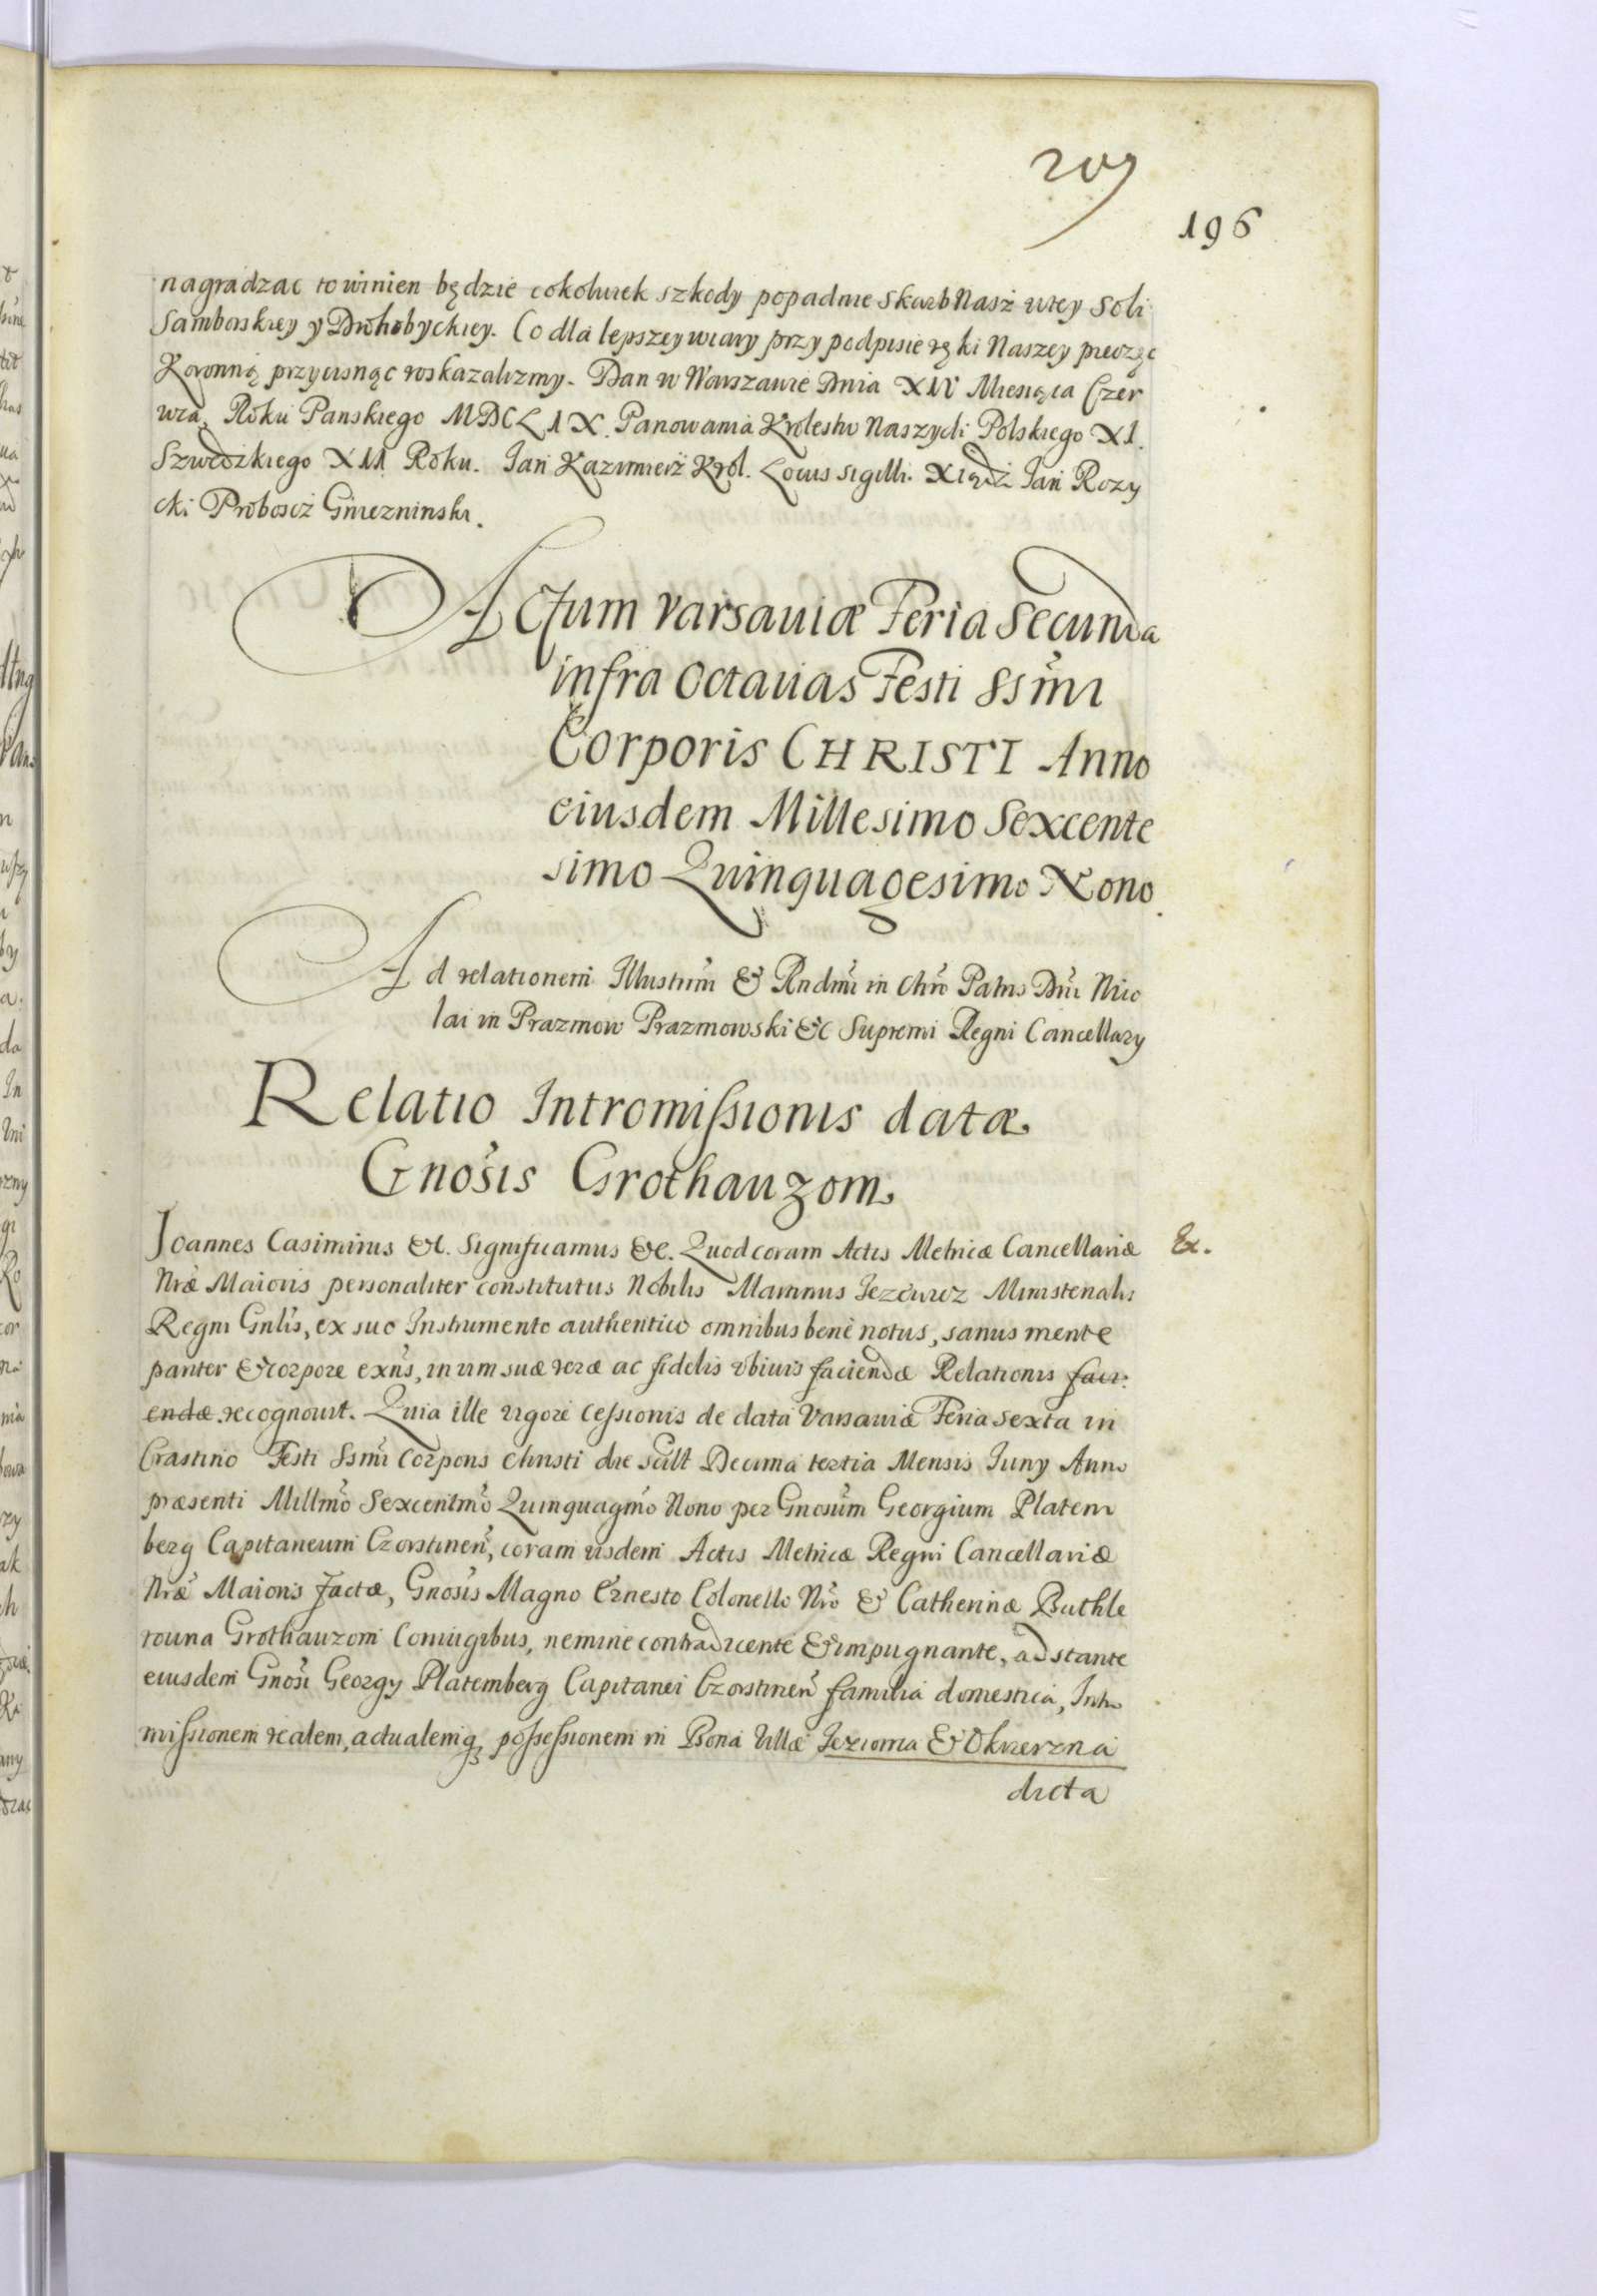 209
196
nagradzac to winien będzie cokolwiek szkody popadnie Skarb Nasz w tey Soli
Samborskiey y Drohobyckiey. Co dla lepszey wiary przy podpisie ręki Naszey pieczęc
Koronną przycisnąc roskazalizmy. Dan w Warszawie Dnia XIV Miesiąca Czer
wca, Roku Panskiego MDCLIX. Panowania Krolestw Naszych Polskiego XI.
Szwedzkiego XII Roku. Jan Kazimierz Krol. Locus sigilli. Xiądz Jan Rozy
cki Proboscz Gniezninski.
Actum Varsaviæ Feria Secunda
infra Octauas Festi SSimi
Corporis CHRISTI Anno
eiusdem Millesimo Sexcente
simo Quinquagesimo Nono.
Ad relationem Illustrim̃ & Rndmi in Chro Patris Dni Nico
lai in Prazmow Prazmowski &c Supremi Regni Cancellary
Relatio Intromissionis datæ
Gnosis Grothauzom
Joannes Casimirus &c. Significamus &c. Quod coram Actis Metricæ Cancellariæ
Ex.
Nræ Maioris personaliter constitutus Nobilis Martinus Jezewicz Ministerialis
Regni Gnlis, ex suo Instrumento authentico omnibus bene notus, sanus mente
pariter & corpore exns, in vim suæ veræ ac fidelis vbiuis faciendæ Relationis faci:
endæ recognouit. Quia ille vigore Cessionis de data Varsauiæ Feria Sexta in
Crastino Festi SSmi Corporis Christi die scilt Decima tertia Mensis Juny Anno
præsenti Millmo Sexcentmo Quinquagmo Nono per Gnosum Georgium Platem
berg Capitaneum Czorstinen, coram iisdem Actis Metricæ Regni Cancellariæ
Nræ Maioris factæ, Gnosis Magno Ernesto Colonello Nro & Catherinæ Buthle
rouna Grothauzom Coniugibus, nemine contradicente & impugnante, adstante
eiusdem Gnosi Georgy Platemberg Capitanei Czorstinen familia domestica, Intro
missionem realem, actualemq possessionem in Bona Villæ Jezioma & Okierzna
dicta